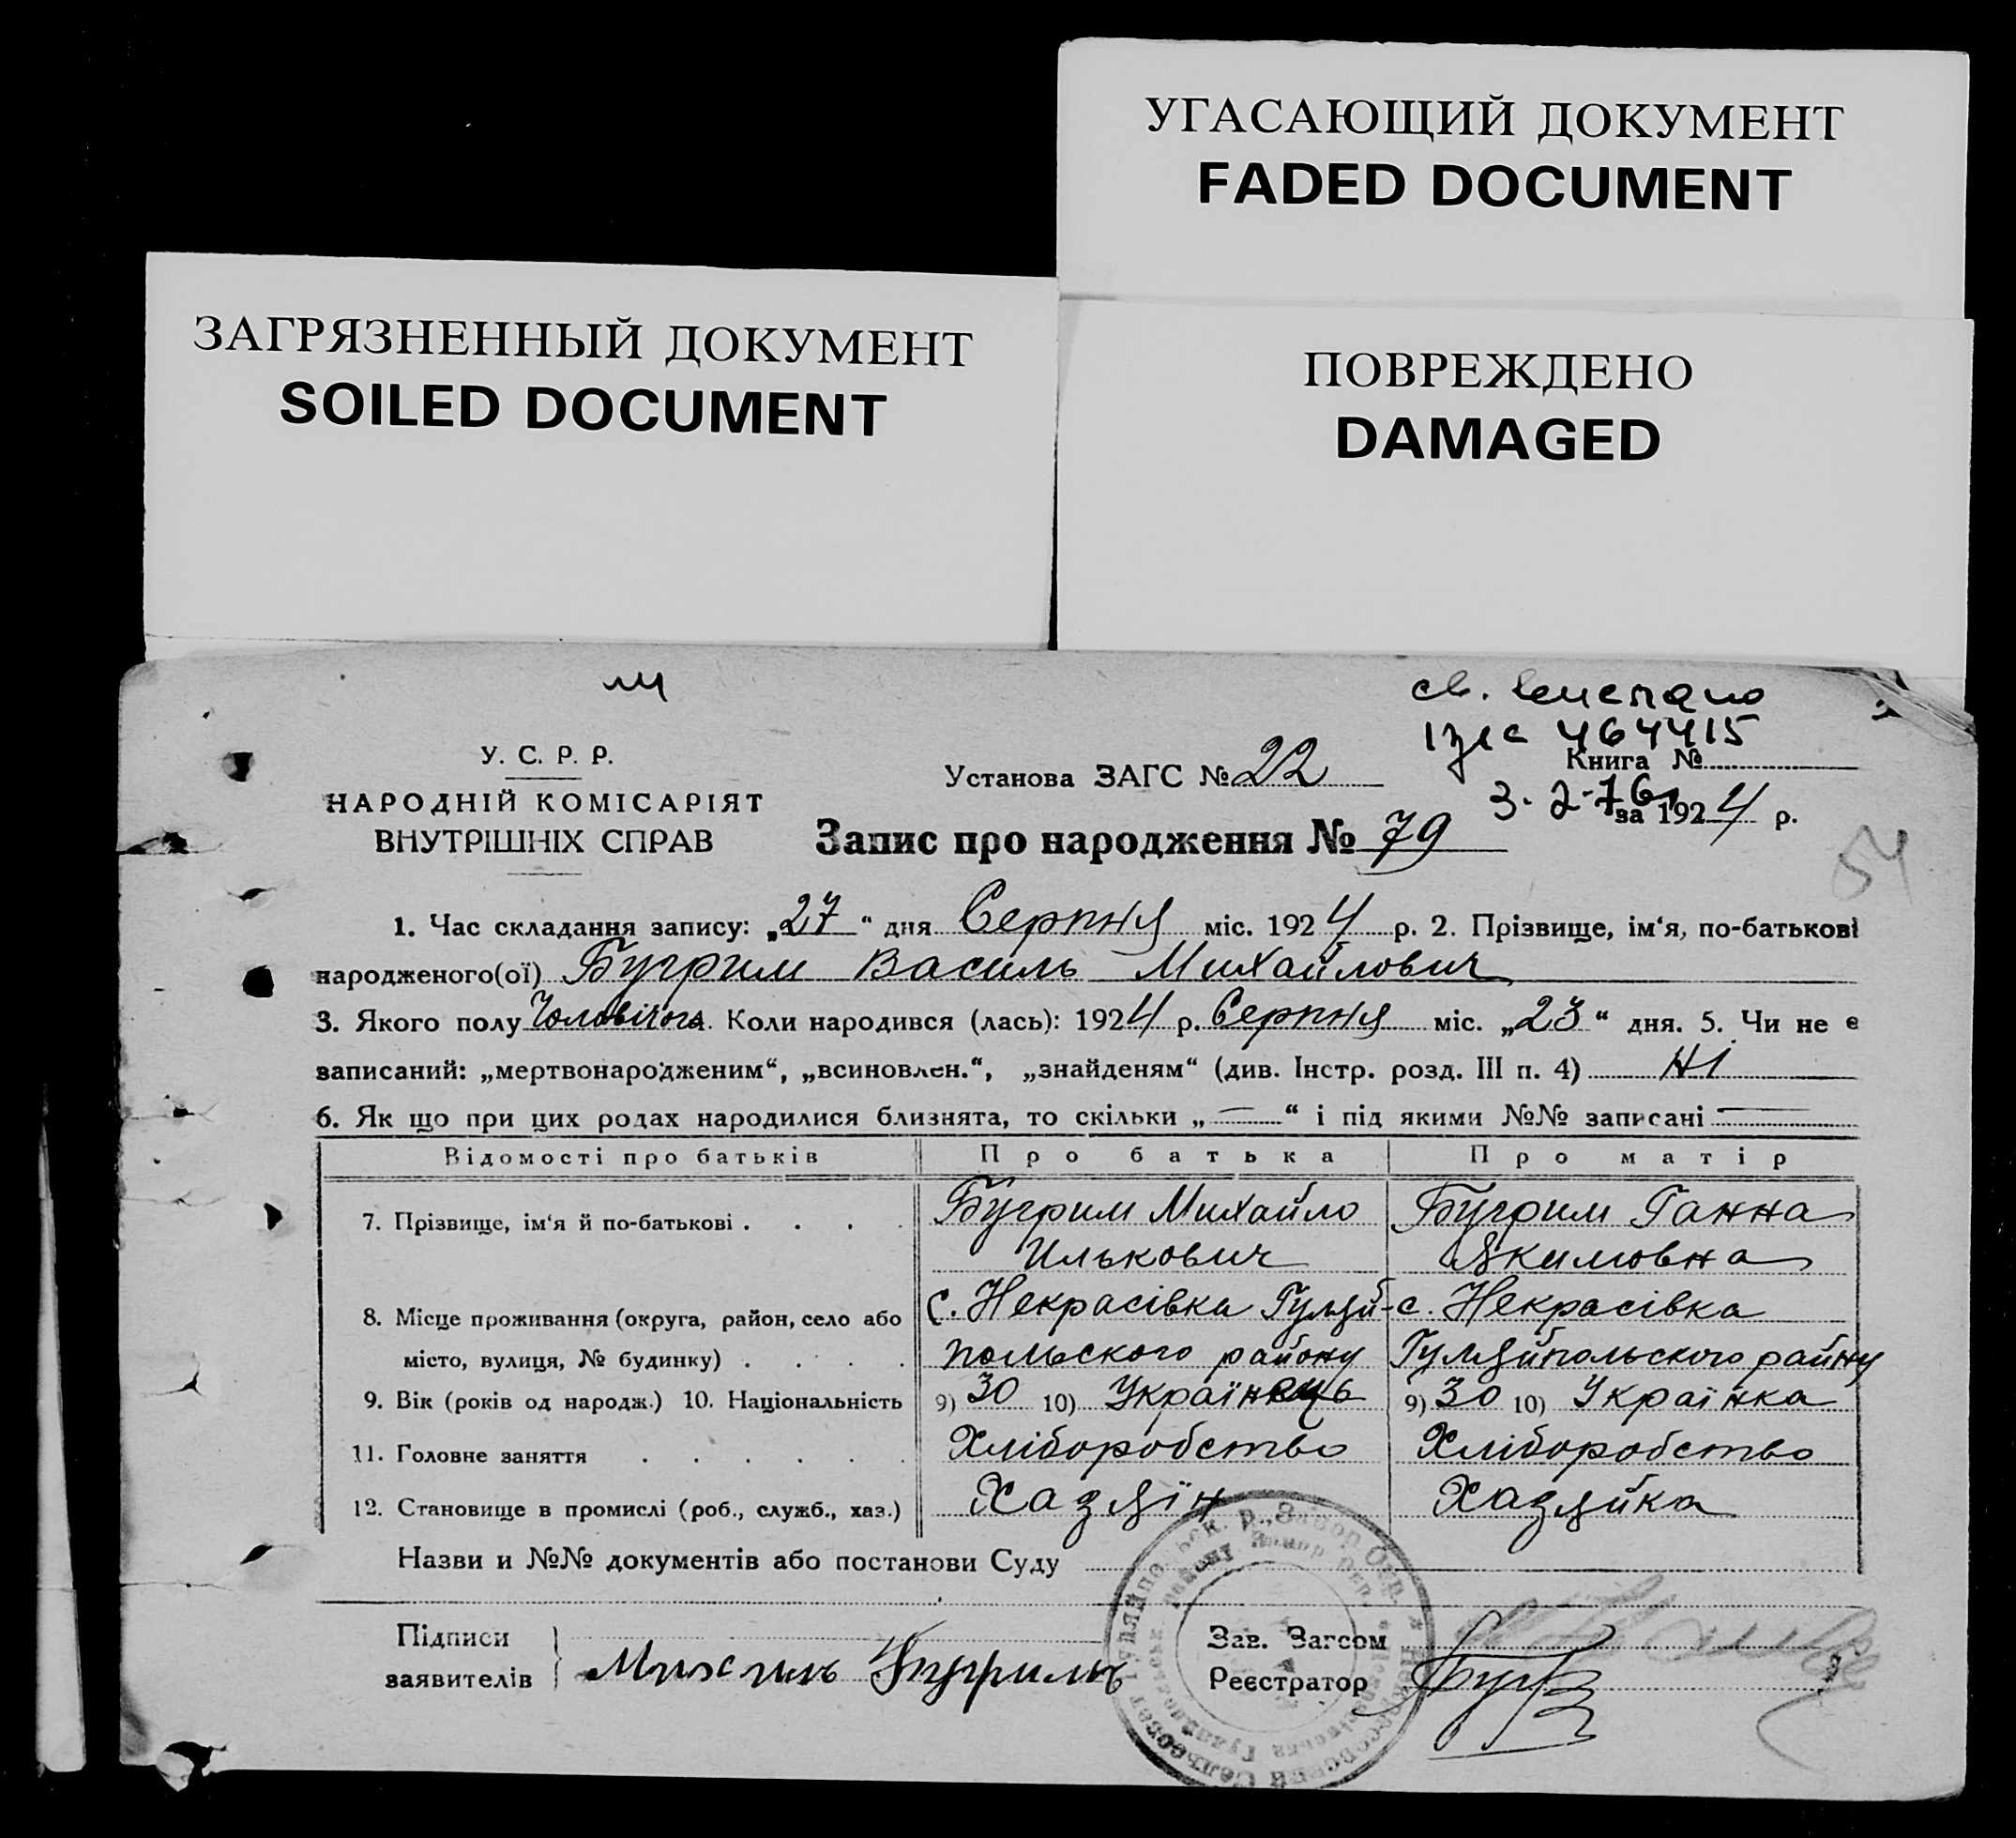 УГАСАЮЩИЙ ДОКУМЕНТ
FADED DOCUMENT
ЗАГРЯЗНЕННЫЙ ДОКУМЕНТ
SOILED DOCUMENT
ПОВРЕЖДЕНО
DAMAGED
св. выслано
464415
3.2.76
У. С. Р. Р.
НАРОДНІЙ КОМІСАРІЯТ
ВНУТРІШНІХ СПРАВ
Установа ЗАГС № 22
Книга №
за 1924 р.
Запис про народження № 79
54
1. Час складання запису: „27“ дня Серпня міс. 1924 р. 2. Прізвище, ім‘я, по-батькові
народженого(ої) Бугрим Василь Михайлович
3. Якого полу Чоловічого. Коли народився (лась): 1924 р. Серпня міс. „23“ дня. 5. Чи не є
записаний: „мертвонародженим“, „всиновлен.“, „знайденям“ (див. Інстр. розд. III п. 4) Ні
6. Як що при цих родах народилися близнята, то скільки „—“ і під якими №№ записані —
Відомості про батьків Про батька Про матір
7. Прізвище, ім‘я й по-батькові . . . . Бугрим Михайло Бугрим Ганна
Илькович Якимовна
8. Місце проживання (округа, район, село або с. Некрасівка Гуляй- с. Некрасівка
місто, вулиця, № будинку) . . . . польського району Гуляйпольського району
9. Вік (років од народж.) 10. Національність 9) 30 10) Українець 9) 30 10) Українка
11. Головне заняття . . . . . . Хліборобство Хліборобство
12. Становище в промислі (роб., служб., хаз.) Хазяїн Хазяйка
Назви и №№ документів або постанови Суду
Підписи
заявителів Бугримъ
Зав. Загсом
Реєстратор